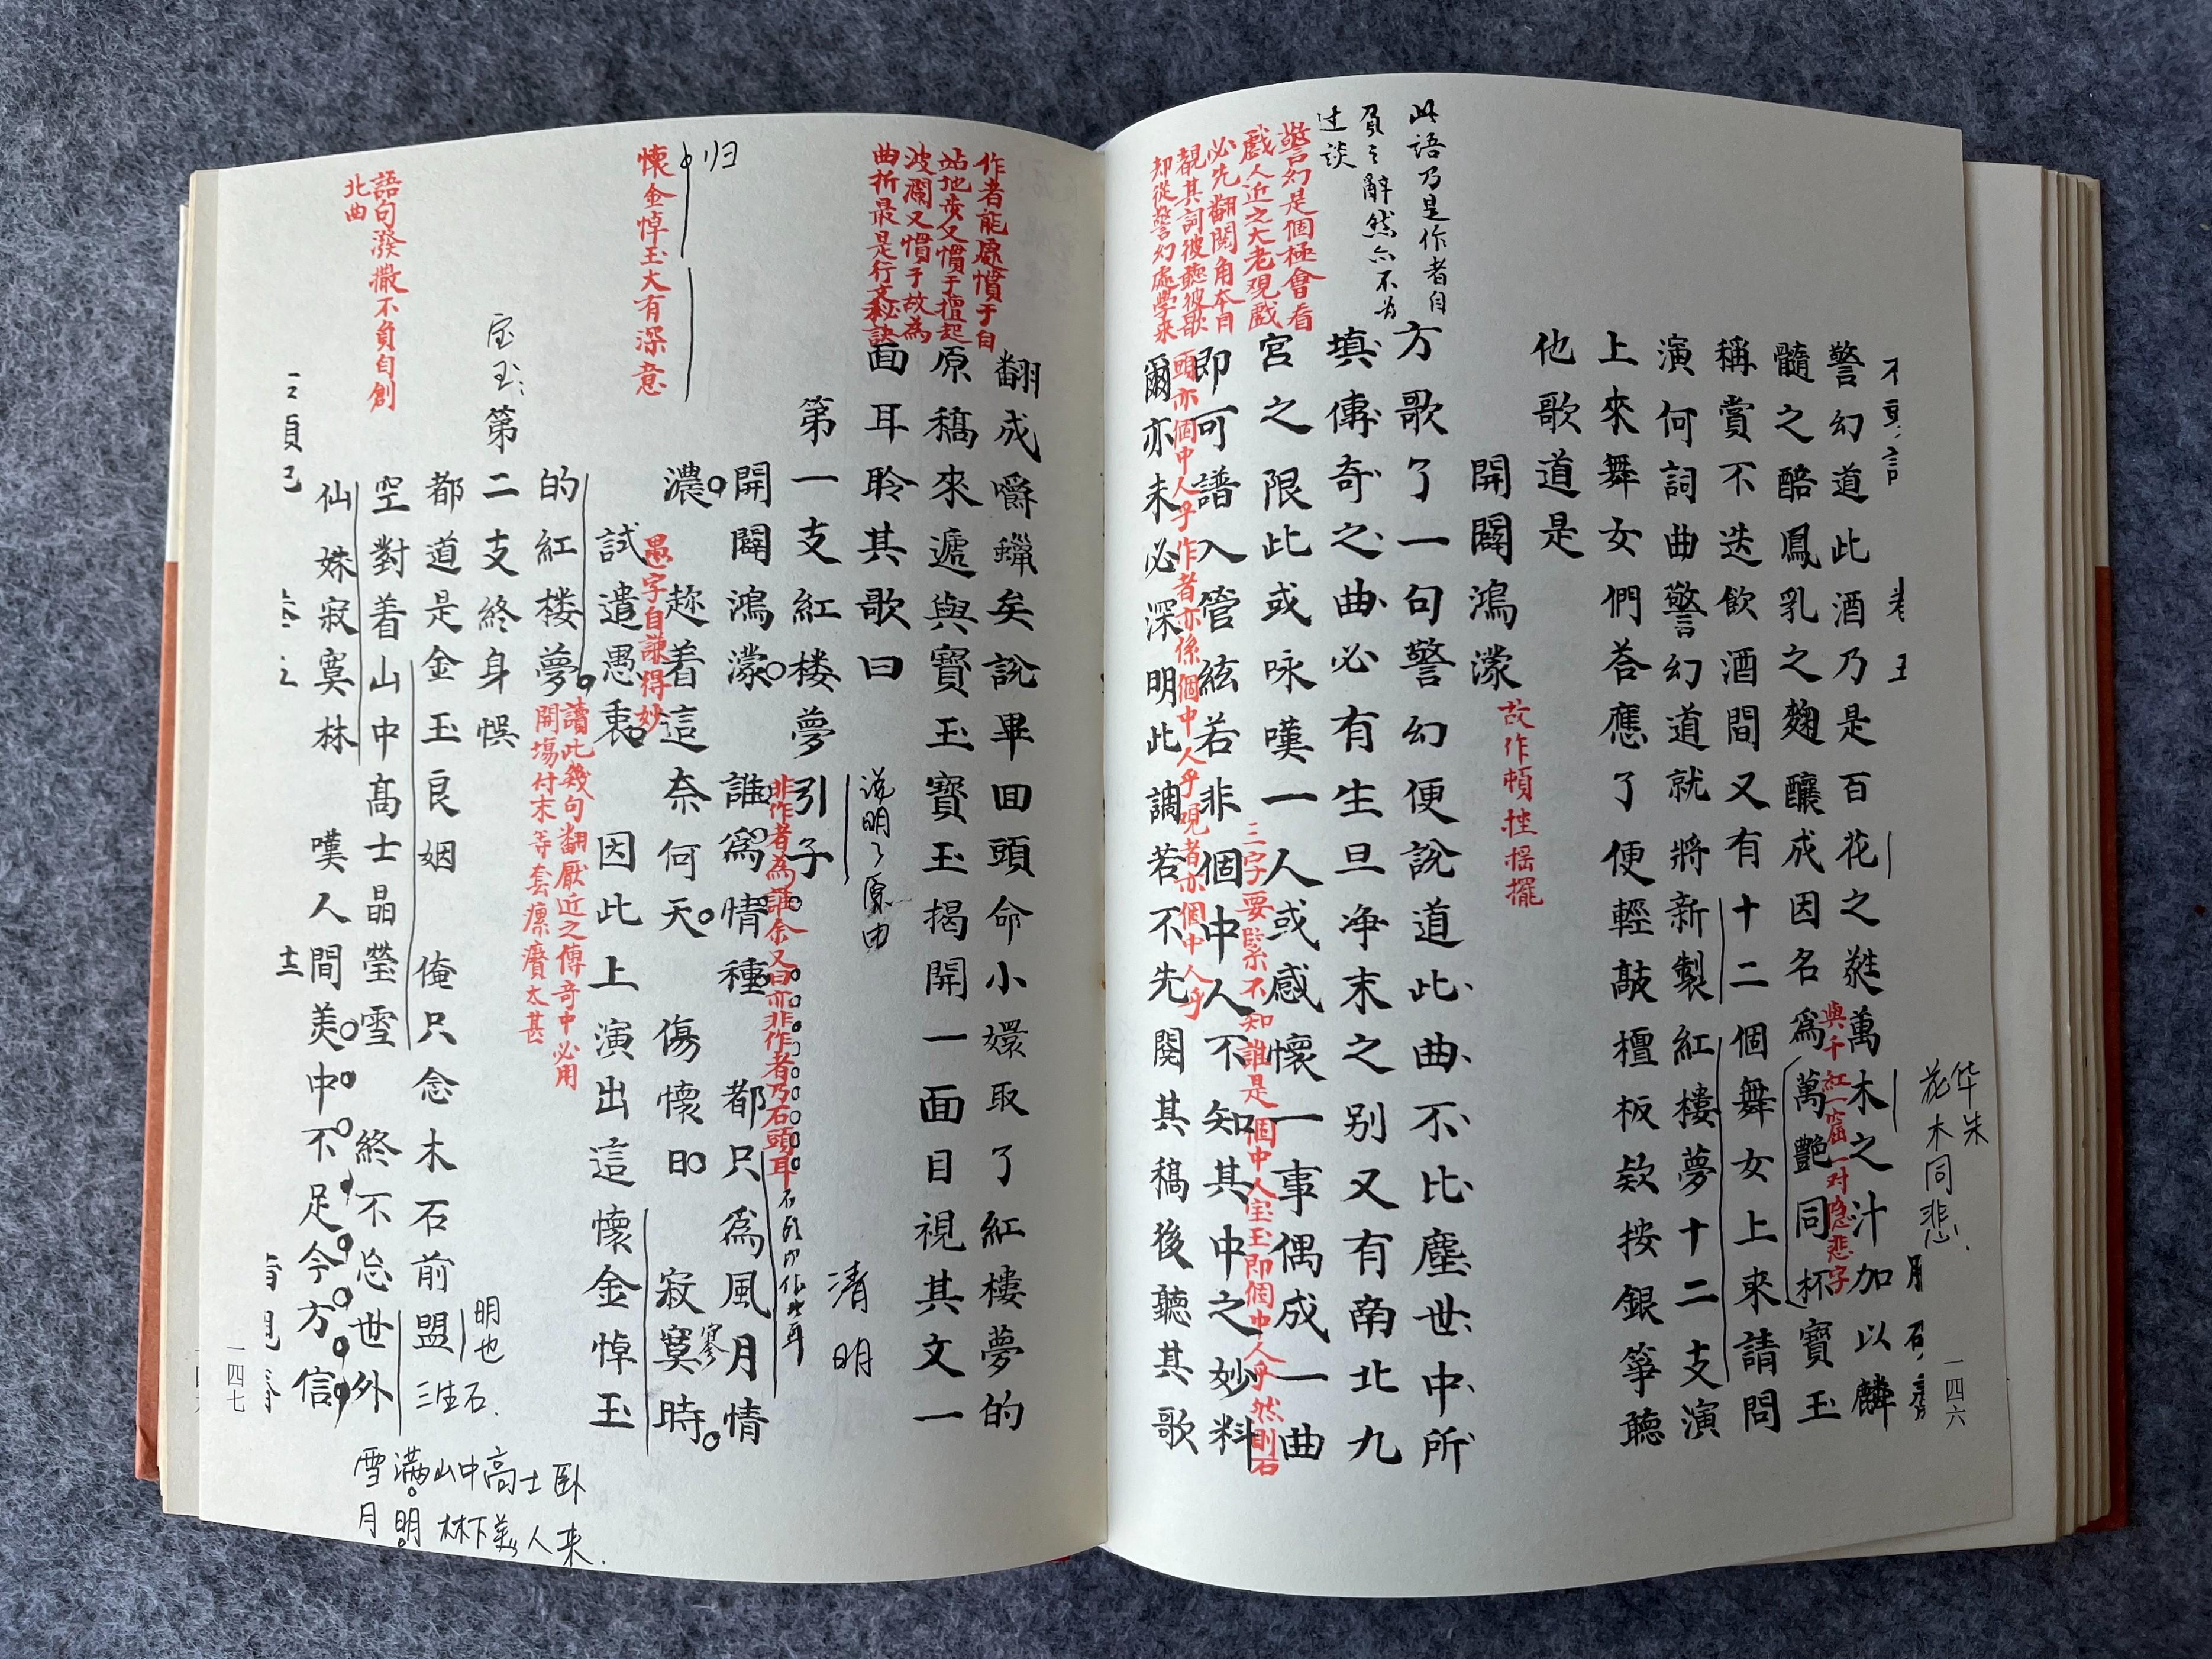 此語乃是作者自
負之辭然亦不为
过谈
警幻是個極會看
戲人近之大老觀戲
必先翻閱角本目
覩其詞彼聽彼歌
却從警幻處學來
警幻道此酒乃是百花之蕤萬木之汁加以麟
髓之醅鳳乳之麴釀成因名爲萬艷同杯寶玉
與千紅一窟一对隐悲字
稱賞不迭飲酒間又有十二個舞女上來請問
演何詞曲警幻道就將新製紅樓夢十二支演
上來舞女們荅應了便輕敲檀板欵按銀箏聽
他歌道是
開闢鴻濛
故作頓挫摇擺
方歌了一句警幻便說道此曲不比塵世中所
填傳奇之曲必有生旦净末之别又有南北九
宮之限此或咏嘆一人或感懷一事偶成一曲
即可譜入管絃若非個中人不知其中之妙料
三字要緊不知誰是個中人宝玉即個中人乎然則石
頭亦個中人乎作者亦係個中人乎观者亦個中人乎
爾亦未必深明此調若不先閱其稿後聽其歌
华朱
花木同悲
一四六
作者能處慣于自
站地步又慣于擅起
波瀾又慣于故為
曲折最是行文秘訣
翻成嚼蠟矣說畢囬頭命小嬛取了紅樓夢的
原稿來遞與寶玉寶玉揭開一面目視其文一
面耳聆其歌曰
说明了原由
清明
第一支紅楼夢引子
開闢鴻濛 誰爲情種 都只爲風月情
非作者為誰余又曰亦非作者乃石頭耳
濃 趂着這奈何天 傷懷日 寂寞時
寥
归
懷金悼玉大有深意
愚字自謙得妙
試遣愚衷 因此上演出這懷金悼玉
的紅楼夢
讀此幾句翻厭近之傳奇中必用
開塲付末等套累贅太甚
宝玉：
第二支終身悮
都道是金玉良姻 俺只念木石前盟
明也
三生石
語句潑撒不負自創
北曲
空對着山中髙士晶瑩雪 終不忘世外
仙姝寂寞林 嘆人間美中不足今方信
雪满山中高士卧
月明林下美人来
一四七